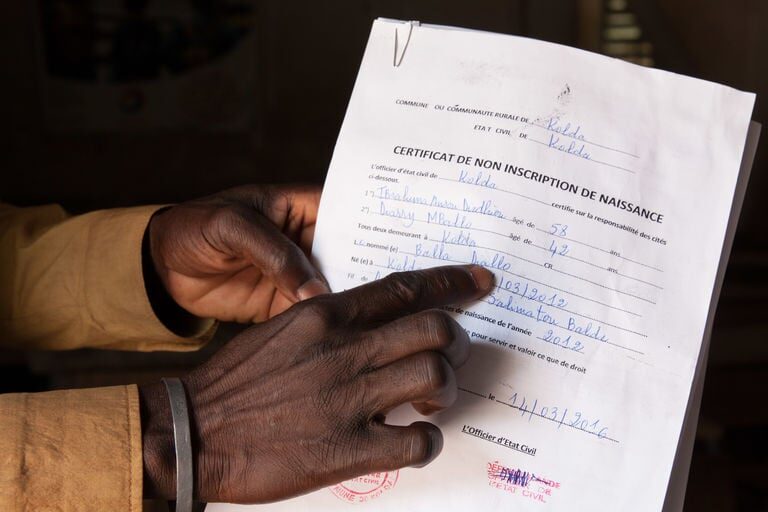 COMMUNE OU COMMUNAUTE RURALE DE Kolda
ETAT CIVIL DE Kolda
CERTIFICAT DE NON INSCRIPTION DE NAISSANCE
L'officier d'état civil de Kolda certifie sur la responsabilité des cités
ci-dessous.
1°) Ibrahima âgé de 58 ans.
2°) Ouarry MBallo âgé de 42 ans.
Tous deux demeurant à Kolda CR
Le nommé (e) Balla
Né (e) à Kolda /03/2012
Fil de Salimatou Balde
tes de naissance de l'année 2012
pour servir et valoir ce que de droit
le 14/03/2016
L'Officier d'Etat Civil
ETAT CIVIL